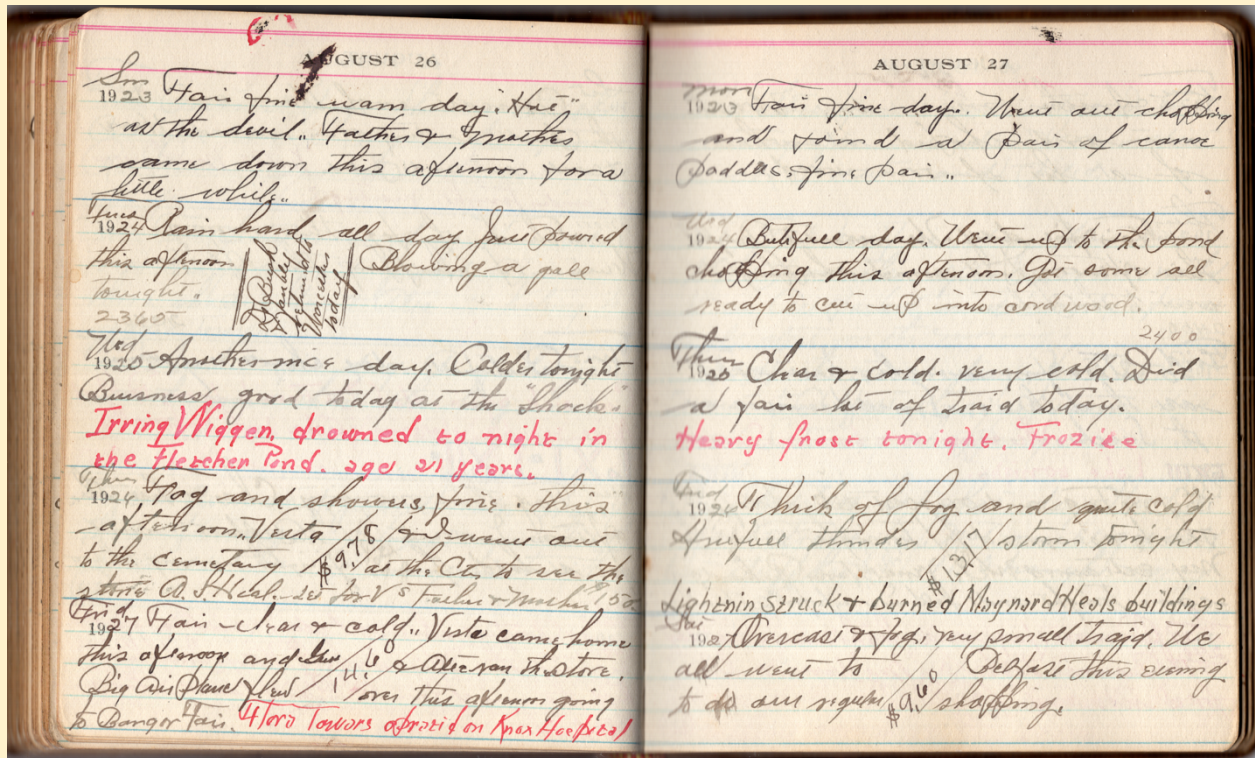 AUGUST 26
Sun
1923 Fair fine warm day. "Hot"
as the devil.. Father & Mother
came down this afternoon for a
little while..
Tues
1924 Rain hard all day Just poured
this afternoon Blowing a gale
tonight.
2365
Bush
& Manley
returned to
Worcester
today
Wed
1925 Another nice day. Colder tonight
Buisness good today at the "Shack"
Irring Wiggen, drowned to night in
the Fletcher Pond. age 21 years.
Thurs
1926 Fog and showers, fine. this
afternoon.. Vesta & I went out
$9.78
to the cemetary at the Ctr to see the
stone A. S. Heal set for V's Father & Mother
Frid
1927 Fair clear & cold.. Vesta came home
this afternoon and & Alice ran the store.
14.60
Big Air Plane flew over this afternoon going
to Bangor Fair. 4 Tora Towars opraid on Knox Hospital
AUGUST 27
Mon
1923 Fair fine day. Went out chopping
and found a pair of canoe
paddles, fine pair..
Wed
1924 Butifull day. Went up to the pond
chopping this afternoon. Got some all
ready to cut up into cord wood.
2400
Thurs
1925 Clear & cold. very cold. Did
a fair lot of traid today.
Heavy frost tonight. Frozice
Frid
1926 Thick of fog and quite cold
Awfull thunder storm tonight
$13.17
Lightnin struck & burned Maynard Heals buildings
Sat
1927 Overcast & fog. very small traid. We
all went to Belfast this evening
$9.60
to do our regular shopping.